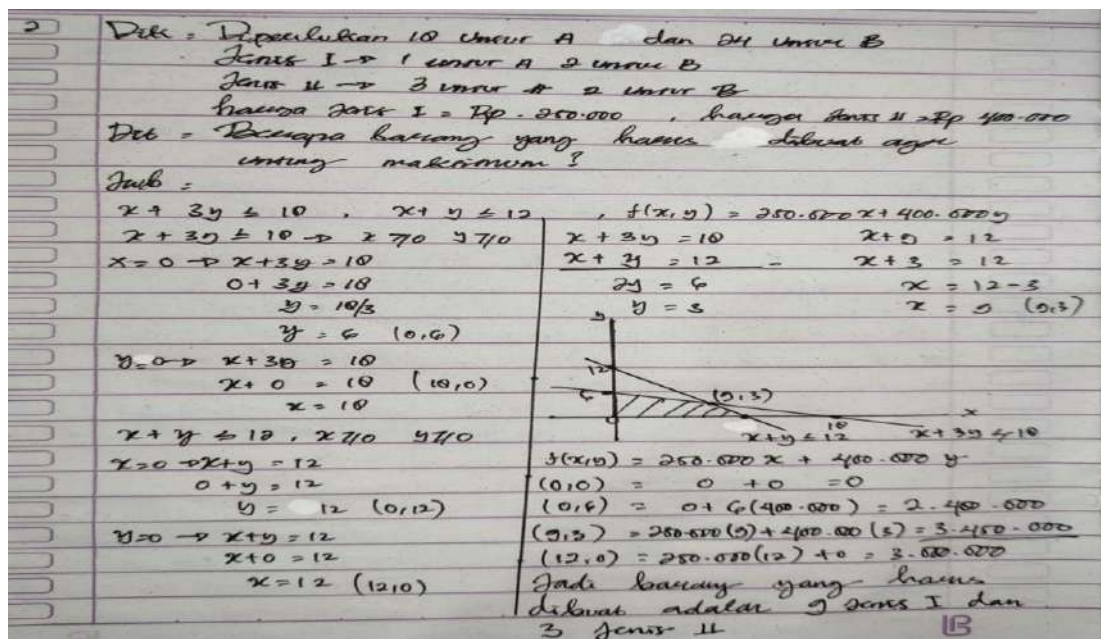 2
Dik = Diperlukan 18 unsur A dan 24 unsur B
Jenis I → 1 unsur A 2 unsur B
Jenis II → 3 unsur A 2 unsur B
harga Jenis I = Rp. 250.000 , harga Jenis II = Rp 400.000
Dit = Berapa barang yang harus dibuat agar
untung maksimum ?
Jwb =
x + 3y ≤ 18 , x + y ≤ 12 , f(x,y) = 250.000x + 400.000y
x + 3y ≤ 18 → x ≥ 0 y ≥ 0
x = 0 → x + 3y = 18
0 + 3y = 18
y = 18/3
y = 6 (0,6)
y = 0 → x + 3y = 18
x + 0 = 18 (18,0)
x = 18
x + y ≤ 12 , x ≥ 0 y ≥ 0
x = 0 → x + y = 12
0 + y = 12
y = 12 (0,12)
y = 0 → x + y = 12
x + 0 = 12
x = 12 (12,0)
x + 3y = 18
x + y = 12 -
2y = 6
y = 3
x + y = 12
x + 3 = 12
x = 12 - 3
x = 9 (9,3)
y
12
6
(9,3)
x
18
x + y ≤ 12
x + 3y ≤ 18
f(x,y) = 250.000 x + 400.000 y
(0,0) = 0 + 0 = 0
(0,6) = 0 + 6(400.000) = 2.400.000
(9,3) = 250.000(9) + 400.000(3) = 3.450.000
(12,0) = 250.000(12) + 0 = 3.000.000
Jadi barang yang harus
dibuat adalah 9 Jenis I dan
3 Jenis II